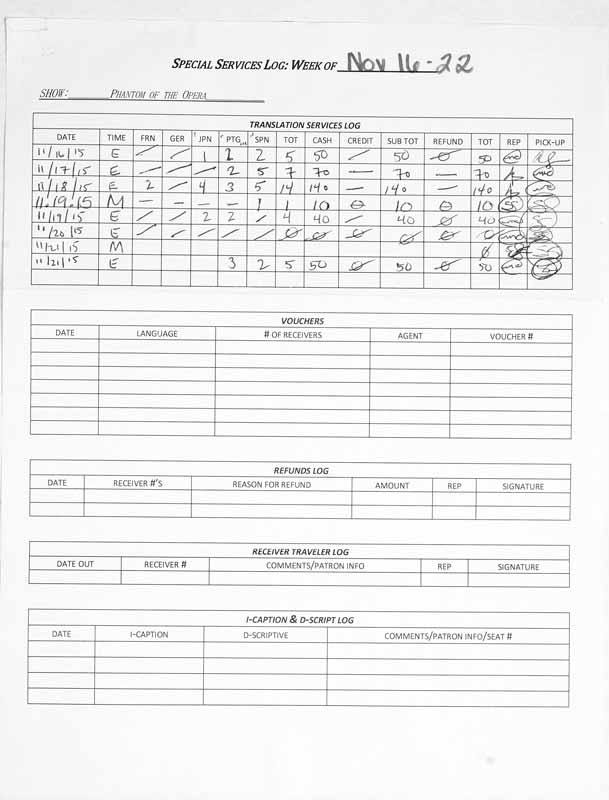 SPECIAL SERVICES LOG: WEEK OF Nov 16-22
SHOW: PHANTOM OF THE OPERA
TRANSLATION SERVICES LOG
DATE TIME FRN GER JPN PTG SPN TOT CASH CREDIT SUB TOT REFUND TOT REP PICK-UP
11/16/15 E / / 1 2 2 5 50 / 50 0 50
11/17/15 E / / / 2 5 7 70 — 70 — 70
11/18/15 E 2 / 4 3 5 14 140 — 140 — 140
11.19.15 M — — — — 1 1 10 0 10 0 10 SS
11/19/15 E / / 2 2 / 4 40 / 40 0 40
11/20/15 E / / / / / 0 0 0 0 0 0
11/21/15 M 0
11/21/15 E 3 2 5 50 0 50 0 50
VOUCHERS
DATE LANGUAGE # OF RECEIVERS AGENT VOUCHER #
REFUNDS LOG
DATE RECEIVER #'S REASON FOR REFUND AMOUNT REP SIGNATURE
RECEIVER TRAVELER LOG
DATE OUT RECEIVER # COMMENTS/PATRON INFO REP SIGNATURE
I-CAPTION & D-SCRIPT LOG
DATE I-CAPTION D-SCRIPTIVE COMMENTS/PATRON INFO/SEAT #